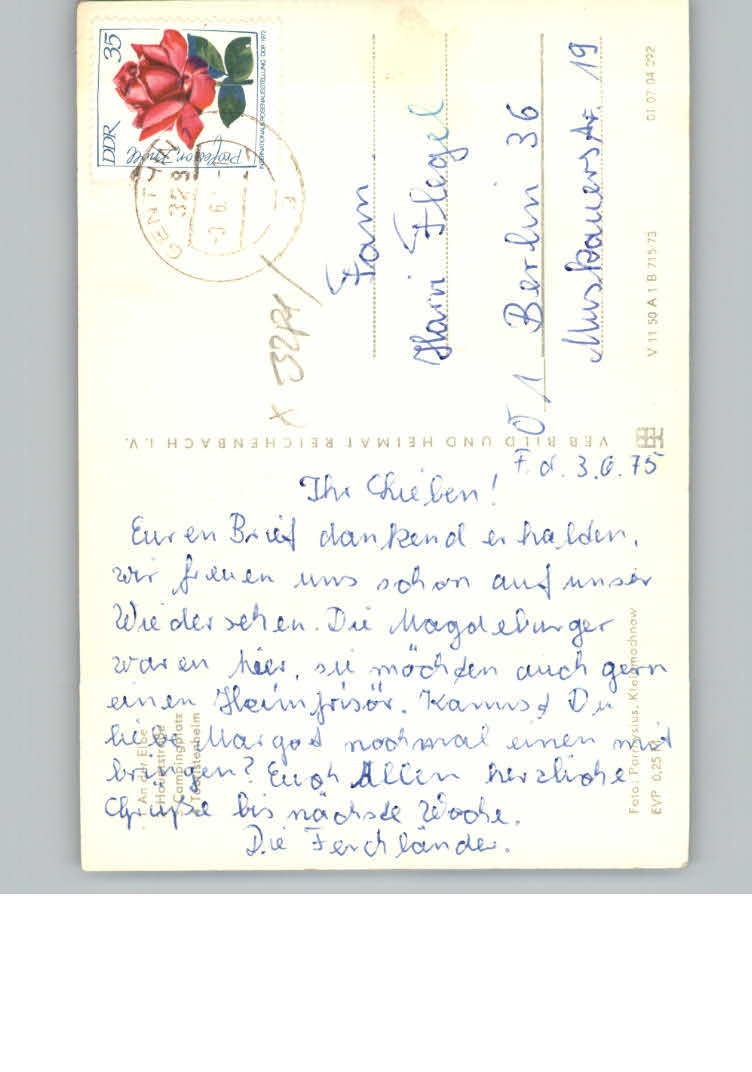 35
DDR
Professor Knöll
INTERNATIONALE ROSENAUSSTELLUNG DDR 1972
GENTHIN
Fam.
Harri Flegel
1 Berlin 36
Muskauerstr. 19
01 07 04 092
V 11 50 A 1 B 715/73
VEB BILD UND HEIMAT REICHENBACH I. V.
F. d. 3.6.75
Ihr Lieben!
Euren Brief dankend erhalden,
wir freuen uns schon auf unser
Wiedersehen. Die Magdeburger
waren hier, sie möchden auch gern
einen Heimfrisör. Kannsd Du
liebe Margod nochmal einen mit
bringen? Euch Allen herzliche
Grüße bis nächsde Woche.
Die Ferchländer.
An der Elbe
Campingplatz
Touristenheim
EVP 0,25 M